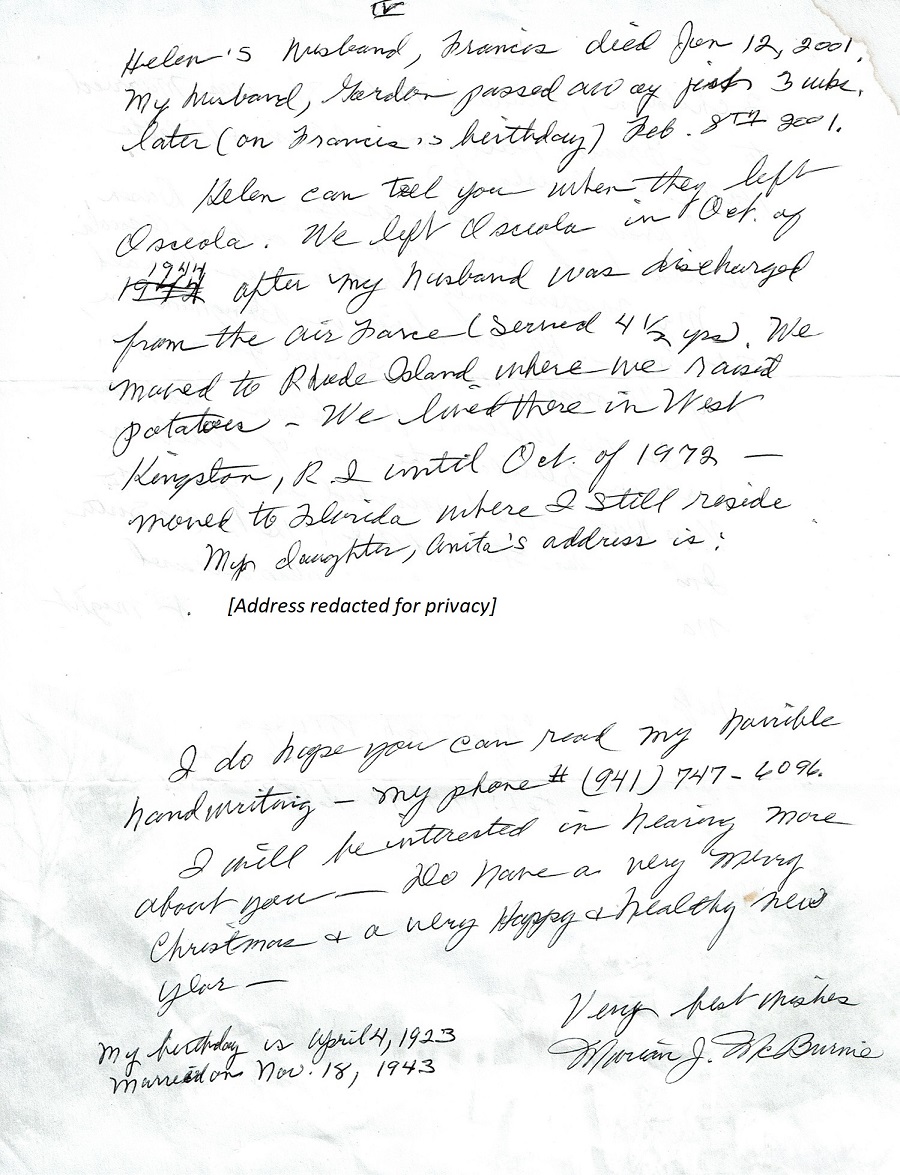 IV
Helen's husband, Francis died Jan 12, 2001.
My husband, Gordon passed away just 3 wks.
later (on Francis's birthday) Feb. 8TH 2001.
Helen can tell you when they left
Osceola. We left Osceola in Oct. of
1944 after my husband was discharged
from the Air Force (served 4 1/2 yrs). We
moved to Rhode Island where we raised
potatoes - We lived there in West
Kingston, R I until Oct. of 1972 —
moved to Florida where I still reside
My daughter, Anita's address is:
[Address redacted for privacy]
I do hope you can read my horrible
handwriting - My phone # (941) 747-6096.
I will be interested in hearing more
about you — Do have a very Merry
Christmas & a very Happy & healthy new
year —
Very best wishes
Marian J. McBurnie
My birthday is April 4, 1923
Married on Nov. 18, 1943